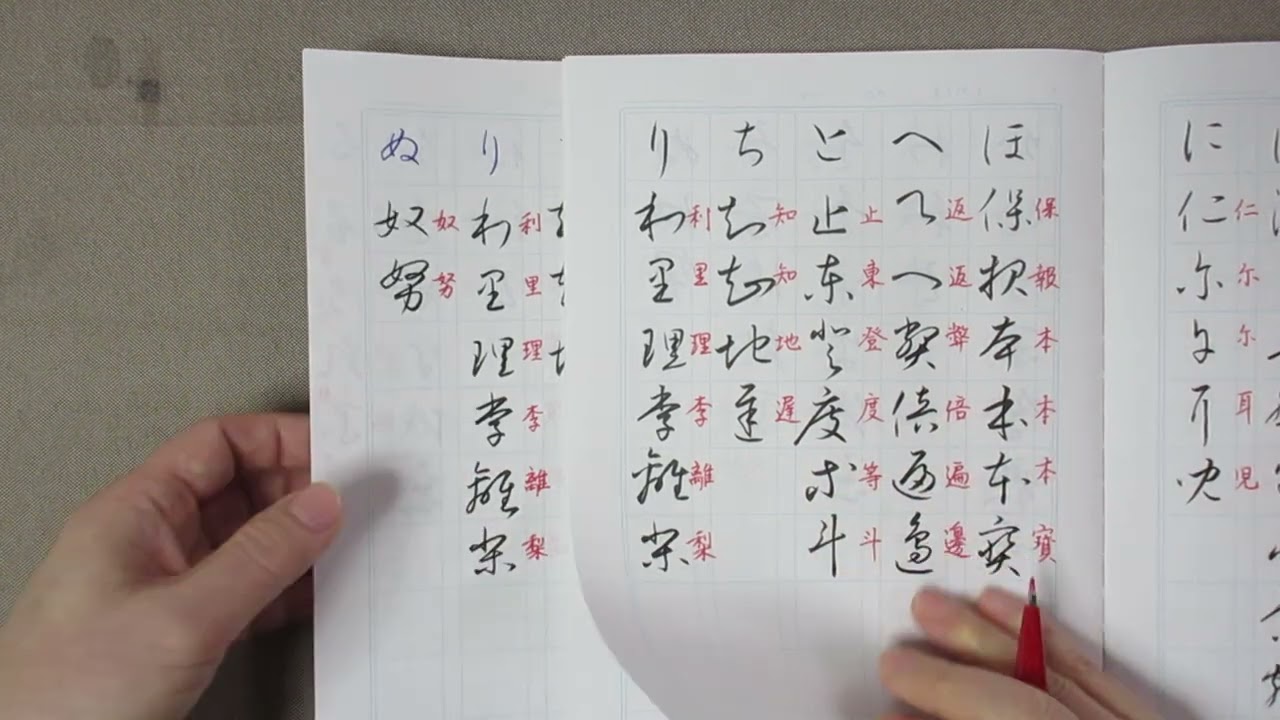 に仁尔尔耳児
仁尔尔耳児
ほ保報本本本寶
保報本本本寶
へ返返弊倍遍邊
返返弊倍遍邊
と止東登度等斗
止東登度等斗
ち知知地遅
知知地遲
り利里理李離梨
利里理李離梨
り利里理李離梨
利里理李離梨
ぬ奴努
奴努